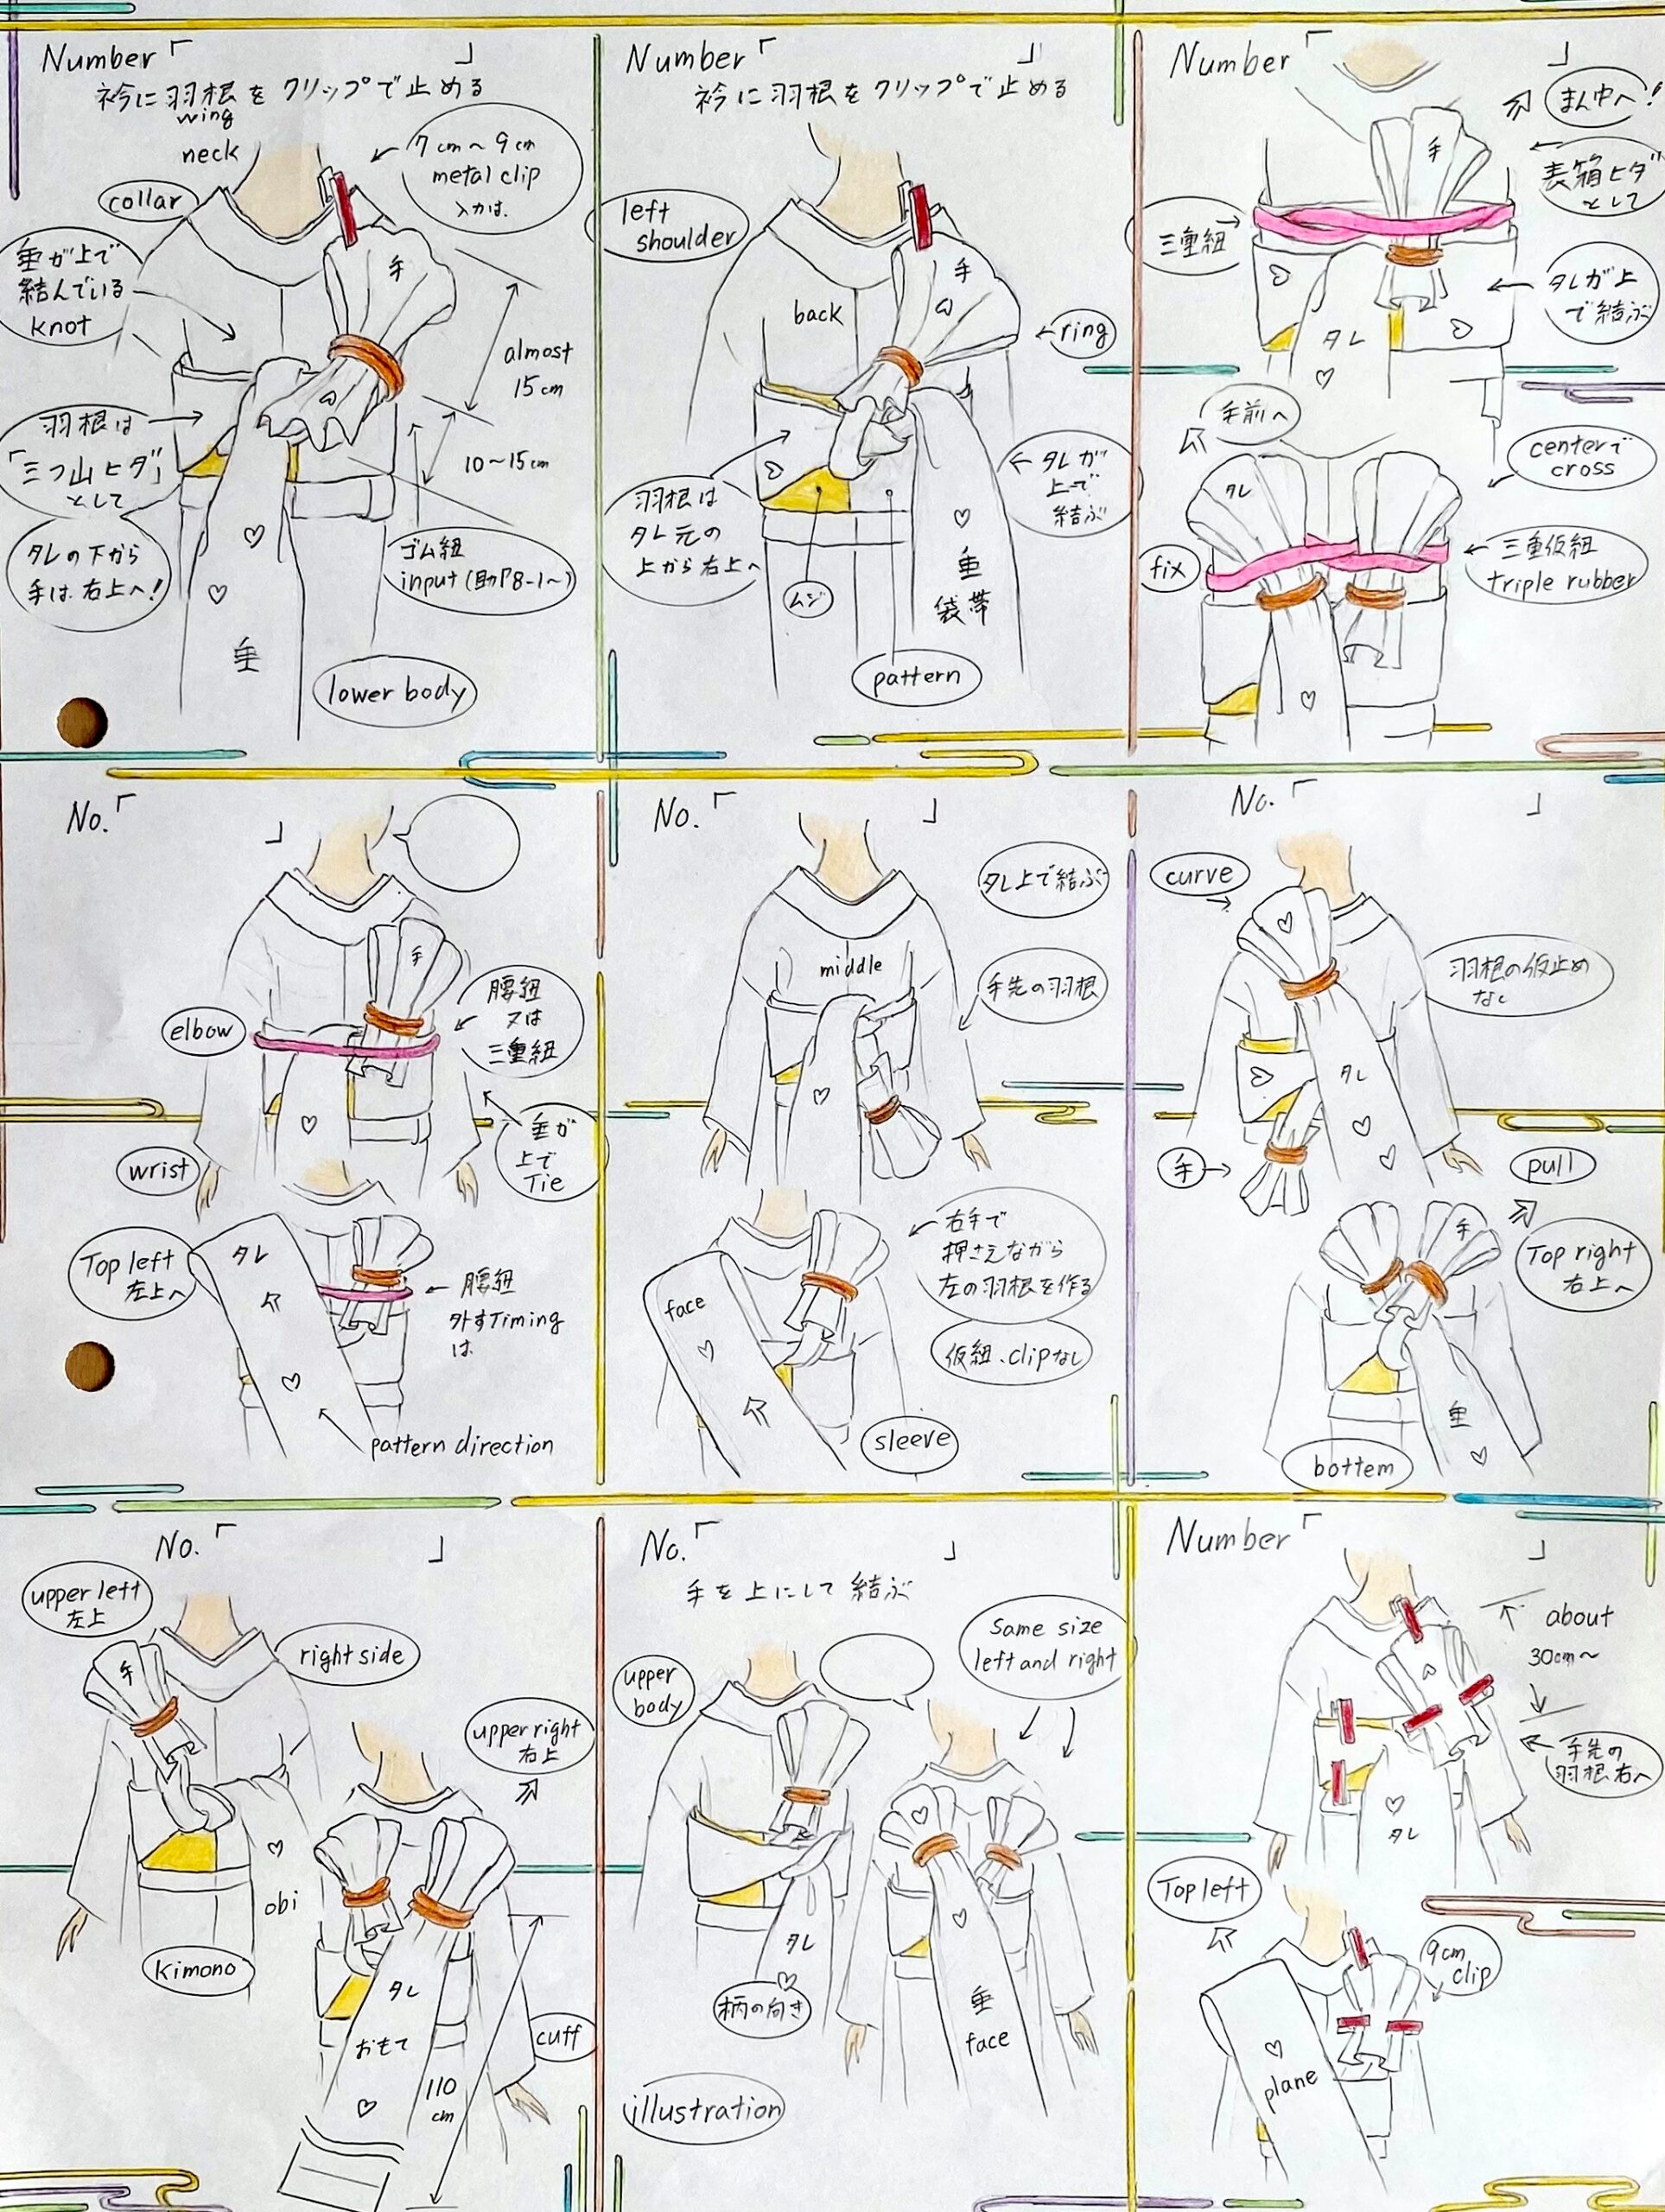 Number「　」
衿に羽根をクリップで止める
wing
neck
collar
7cm～9cm
metal clip
入力は、
垂が上で
結んでいる
knot
手
almost
15cm
羽根は
「三つ山ヒダ」
として
10～15cm
タレの下から
手は、右上へ!
ゴム紐
input(助『8-1～)
垂
lower body
Number「　」
衿に羽根をクリップで止める
left
shoulder
手
back
ring
羽根は
タレ元の
上から右上へ
タレが
上で
結ぶ
ムジ
垂
袋帯
pattern
Number「　」
まん中へ!
手
表箱ヒダ
として
三重紐
タレが上
で結ぶ
タレ
手前へ
centerで
cross
タレ
fix
三重仮紐
triple rubber
No.「　」
手
elbow
腰紐
又は
三重紐
wrist
垂が
上で
Tie
Top left
左上へ
タレ
腰紐
外すTiming
は、
pattern direction
No.「　」
タレ上で結ぶ
middle
手先の羽根
右手で
押さえながら
左の羽根を作る
face
仮紐、clipなし
sleeve
No.「　」
curve
羽根の仮止め
なし
タレ
手
pull
手
Top right
右上へ
垂
bottem
No.「　」
upper left
左上
手
right side
upper right
右上
obi
Kimono
タレ
おもて
cuff
110
cm
No.「　」
手を上にして結ぶ
Same size
left and right
upper
body
タレ
柄の向き
垂
face
illustration
Number「　」
about
30cm～
手先の
羽根右へ
タレ
Top left
9cm
clip
plane